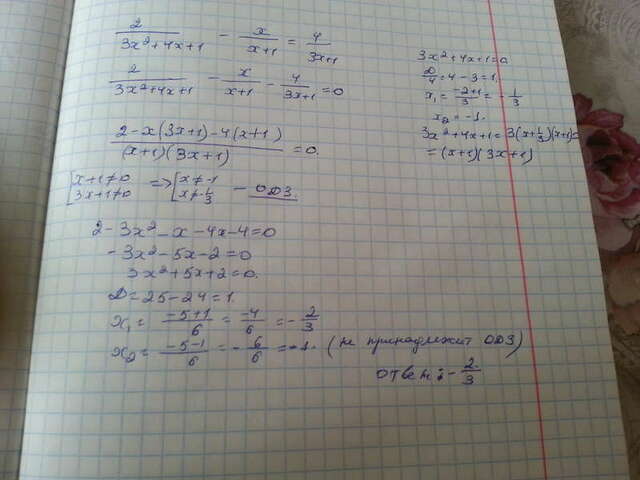 2/(3x²+4x+1) - x/(x+1) = 4/(3x+1)
2/(3x²+4x+1) - x/(x+1) - 4/(3x+1) = 0
(2-x(3x+1)-4(x+1))/((x+1)(3x+1)) = 0.
[x+1≠0 => [x≠-1
[3x+1≠0 [x≠-1/3 - ОДЗ.
2-3x²-x-4x-4=0
-3x²-5x-2=0
3x²+5x+2=0.
D=25-24=1.
x₁= (-5+1)/6 = -4/6 = -2/3
x₂= (-5-1)/6 = -6/6 = -1. (не принадлежит ОДЗ)
ответ: -2/3
3x²+4x+1=0
D/4=4-3=1.
x₁= (-2+1)/3 = -1/3
x₂=-1.
3x²+4x+1= 3(x+1/3)(x+1)=
=(x+1)(3x+1)